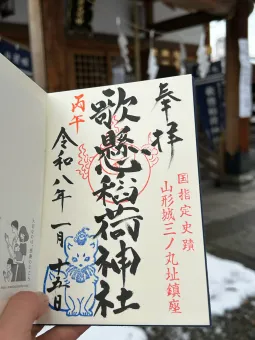 奉拝
国指定史蹟
山形城三ノ丸址鎮座
歌懸稲荷神社
丙午
令和八年一月十五日